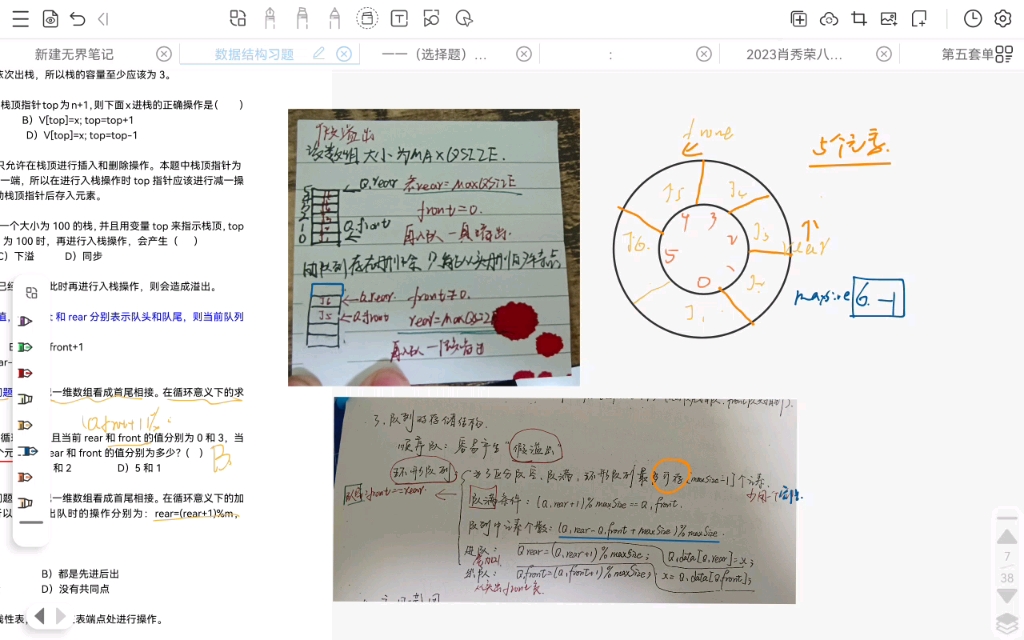 新建无界笔记
数据结构习题
一一（选择题）...
:
2023肖秀荣八...
第五套单
次出栈，所以栈的容量至少应该为 3。
栈顶指针top为n+1,则下面x进栈的正确操作是( )
B）V[top]=x; top=top+1
D）V[top]=x; top=top-1
只允许在栈顶进行插入和删除操作。本题中栈顶指针为
一端，所以在进行入栈操作时 top 指针应该进行减一操
栈顶指针后存入元素。
一个大小为 100 的栈, 并且用变量 top 来指示栈顶, top
为 100 时，再进行入栈操作，会产生（ ）
C）下溢 D）同步
此时再进行入栈操作，则会造成溢出。
和 rear 分别表示队头和队尾，则当前队列
front+1
一维数组看成首尾相接。在循环意义下的求
且当前 rear 和 front 的值分别为 0 和 3，当
ear 和 front 的值分别为多少?（ ）
B
和 2 D）5 和 1
一维数组看成首尾相接。在循环意义下的加
出队时的操作分别为：rear=(rear+1)%m，
B）都是先进后出
D）没有共同点
表端点处进行操作。
假溢出
该数组大小为MAXQSIZE.
Q.rear 若rear=MAXQSIZE
5
4
3
2
1
0
Q.front
front=0.
再入队—真溢出.
J6
Q.rear
front≠0.
J5
Q.front
rear=MAXQSIZE
再入队—假溢出
front
5个元素.
J5
J4
J3
J2
J1
J6
4
3
2
1
0
5
rear
maxsize 6 -1
3、队列的存储结构
顺序队：容易产生"假溢出"
环形队列
为了区分队空、队满，环形队列最多可存[maxSize-1]个元素.
队空 front==rear.
队满条件：(Q.rear+1)%maxSize==Q.front.
队列中元素个数：(Q.rear-Q.front+maxSize)%maxSize
进队：Q.rear=(Q.rear+1)%maxSize; Q.data[Q.rear]=x;
出队：Q.front=(Q.front+1)%maxSize; x=Q.data[Q.front];
7
38